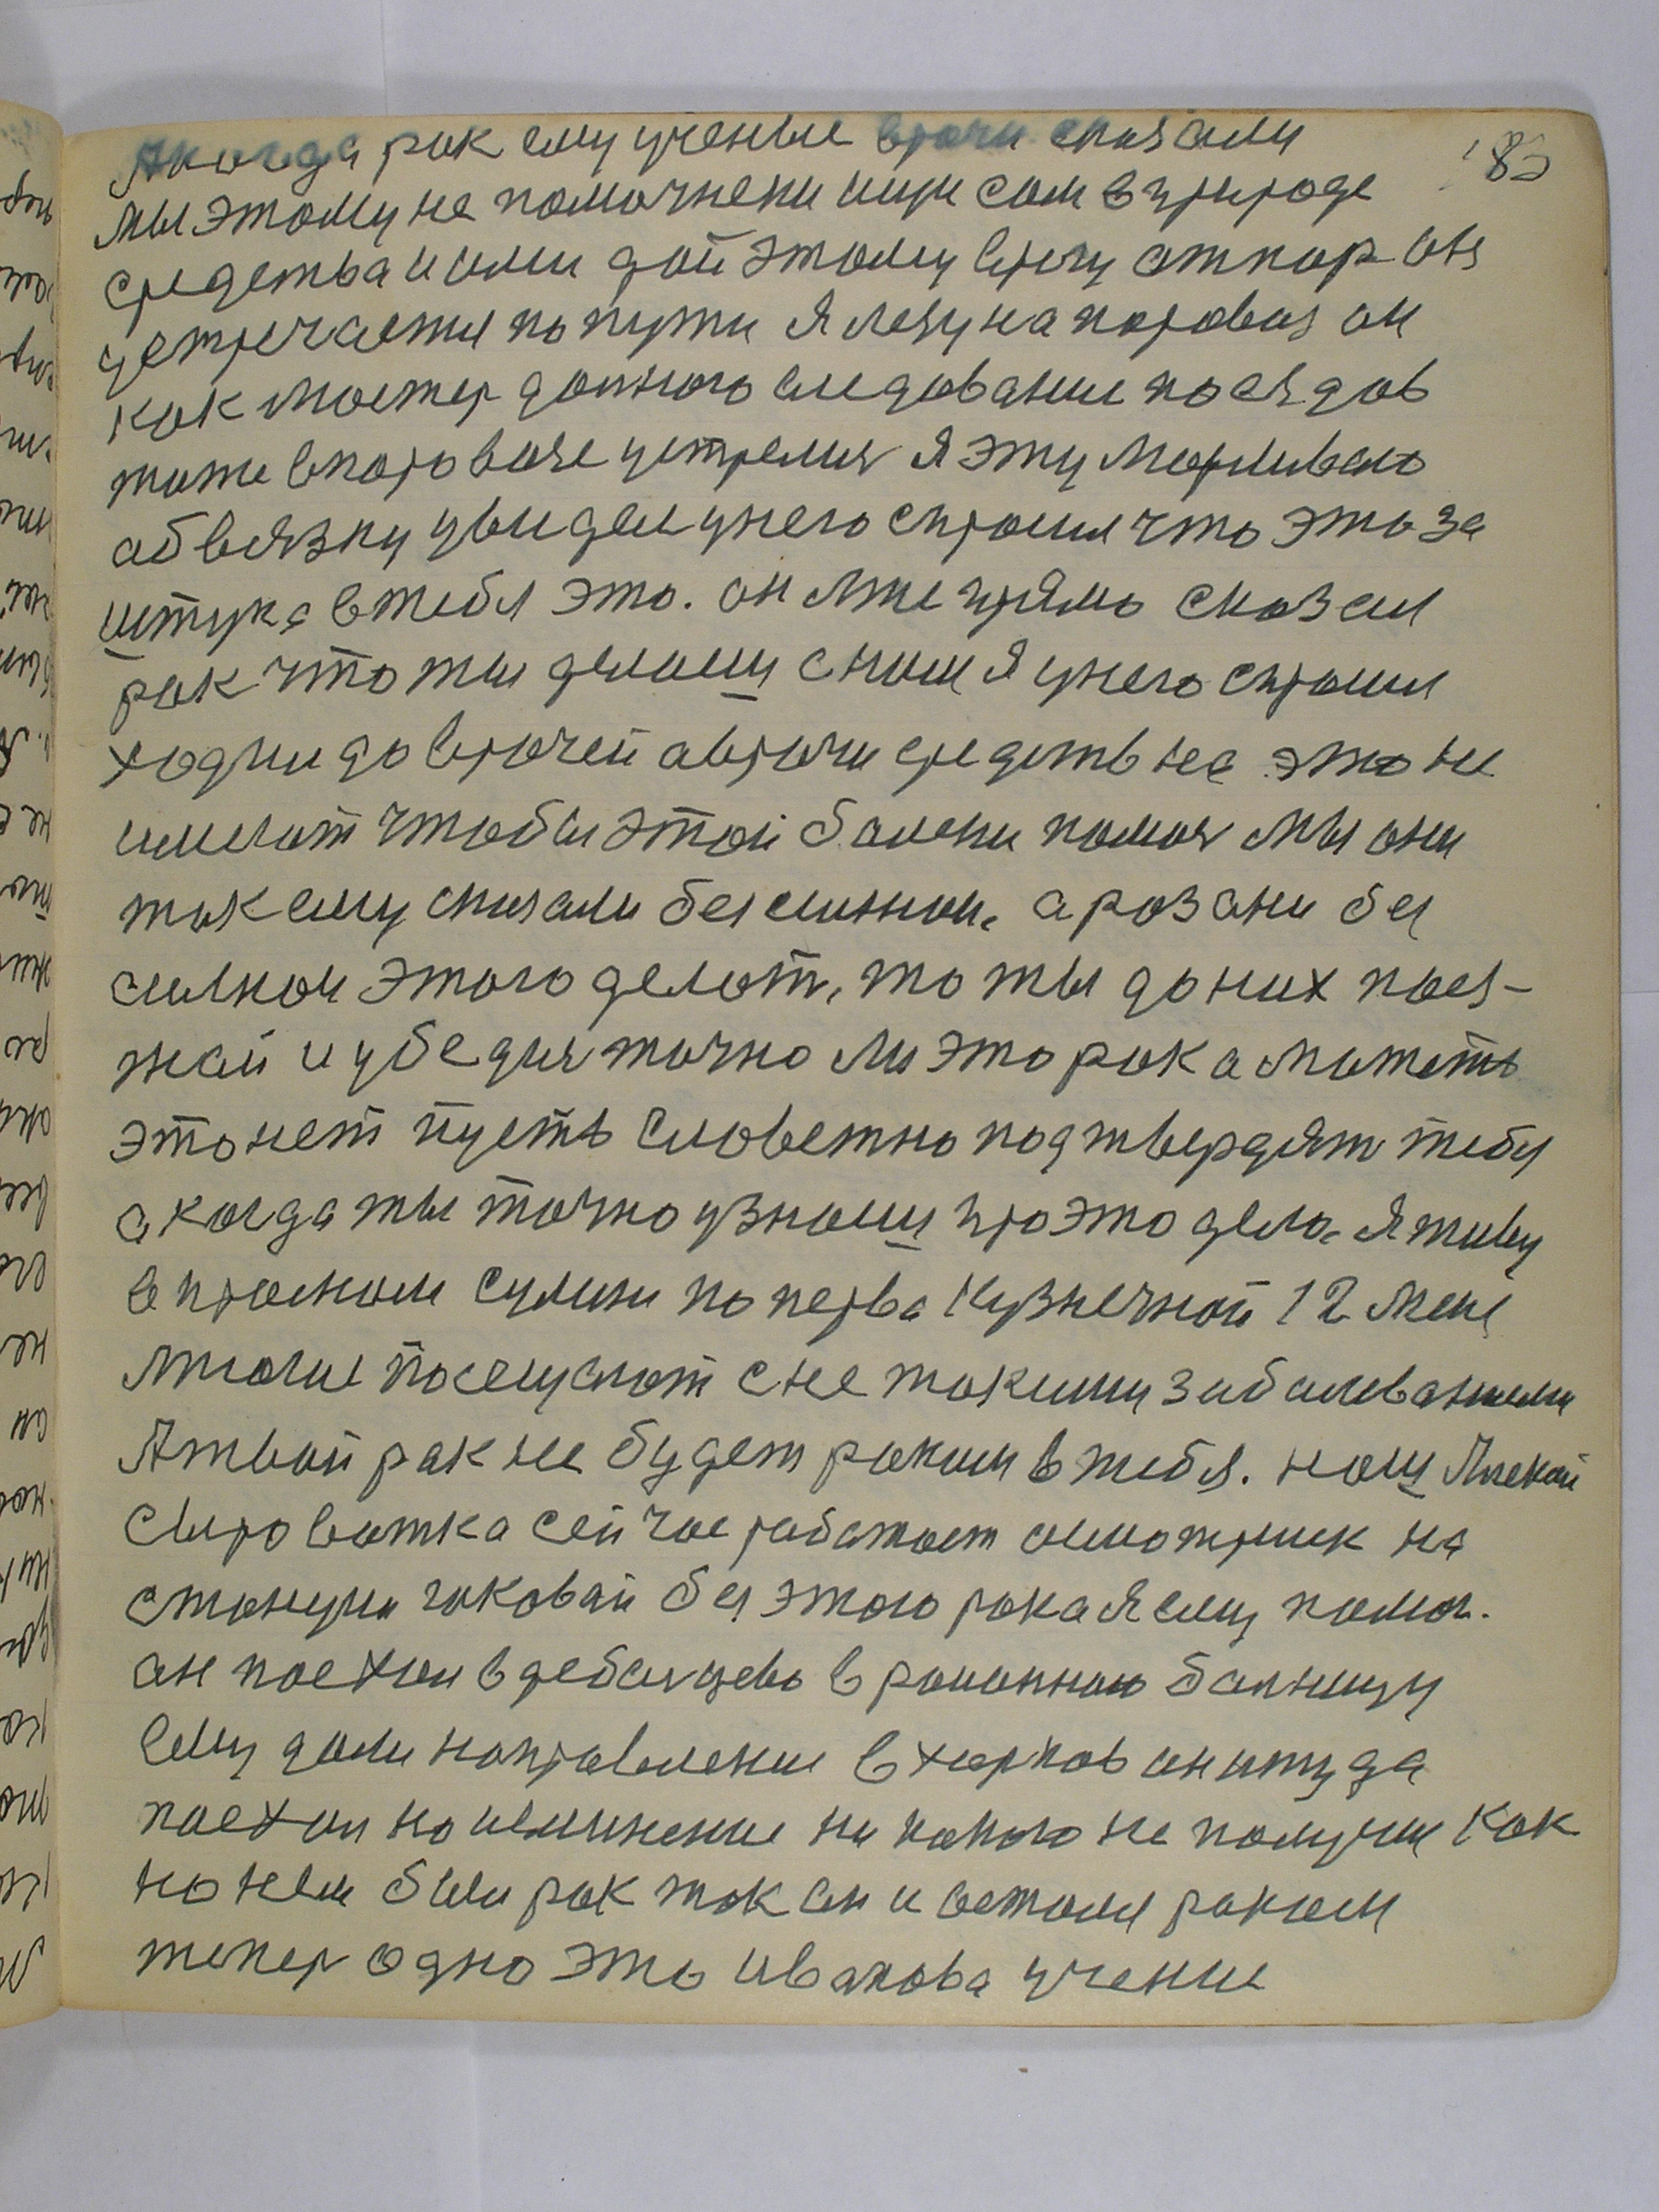 183
А когда рак ему ученые врачи сказали
мы этому не помочнени ищи сам в природе
средства и ими дай этому врагу отпор он
устречается по пути я лезу на паровоз он
как мастер долнего следование поездов
тоже в паровозе устрелил я эту марливаю
абвязку увидел у него спросил что это за
штука в тебя это. он мне прямо сказал
рак что ты делаеш с ним я у него спросил
ходил до врачей а врачи средств на это не
имеют чтобы этой болени помоч мы они
так ему сказали безсильнои. а раз они без
силнои этого делат, то ты до них поез-
жай и убедися точно ли это рак а может
это нет пусть словетно подтвердят тебя
а когда ты точно узнаеш про это дело. я живу
в прасном сулини по перва Кузнечной 12 меня
многие посещуют с не такими забалеваниеми
А твой рак не будет раком в тебя. наш Алекей
Сыроватка сейчас работает осмотрщик на
станции чаковай без этого рака я ему помог.
он поехал в дебальцево в раионною балницу
ему дали направление в харков он и туда
поехал но изличение ни какого не получил как
на нем был рак так он и остался раком
тепер одно это иванова учение